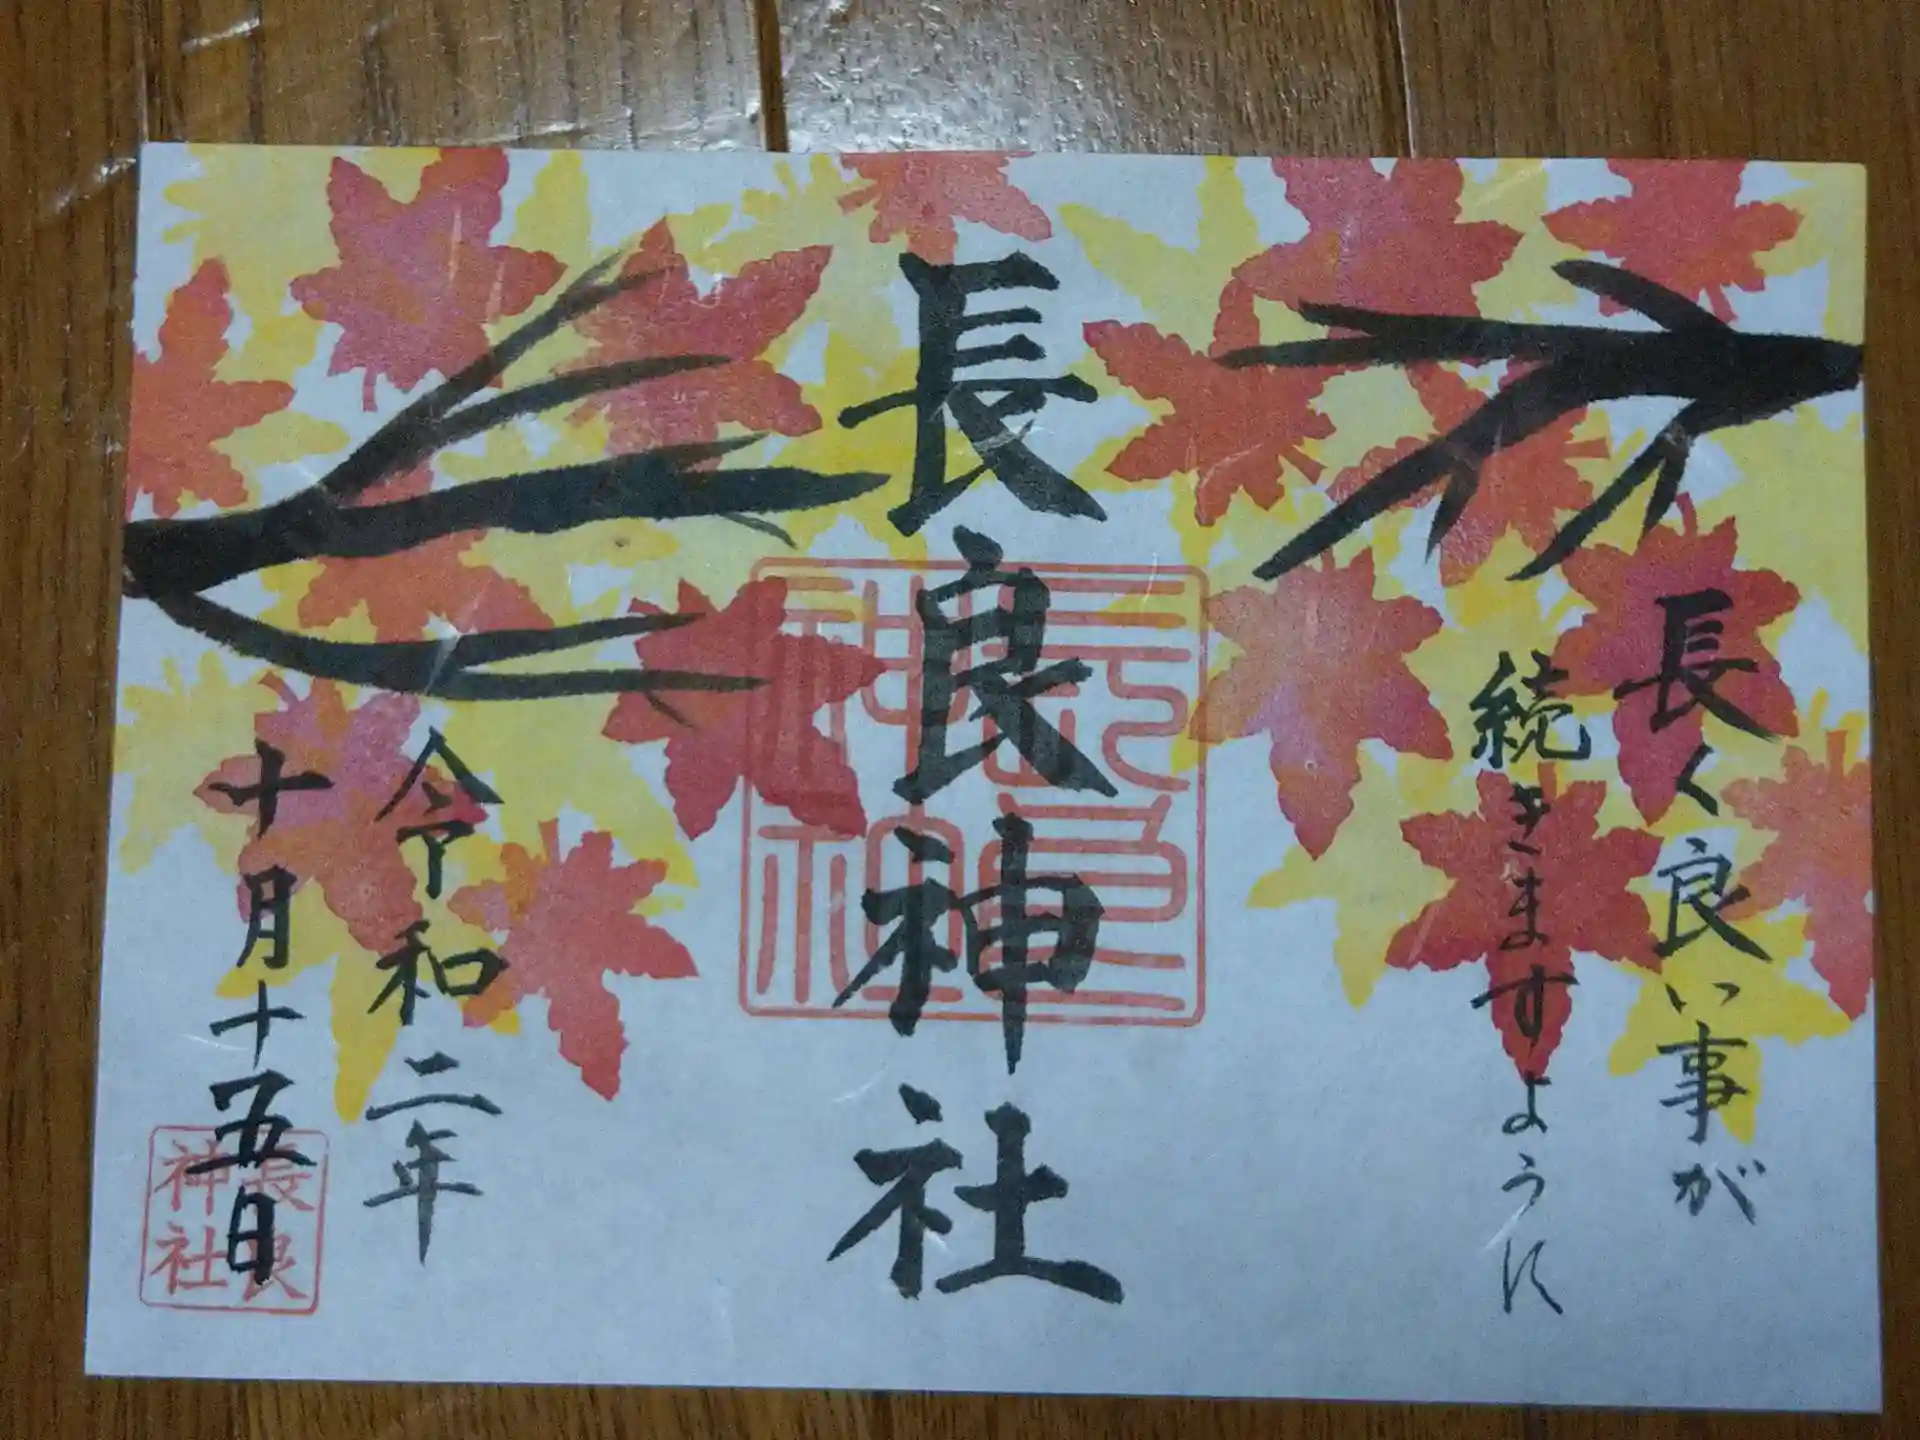 長く良い事が
続きますように
長良神社
長良神社
令和二年
十月十五日
長良神社